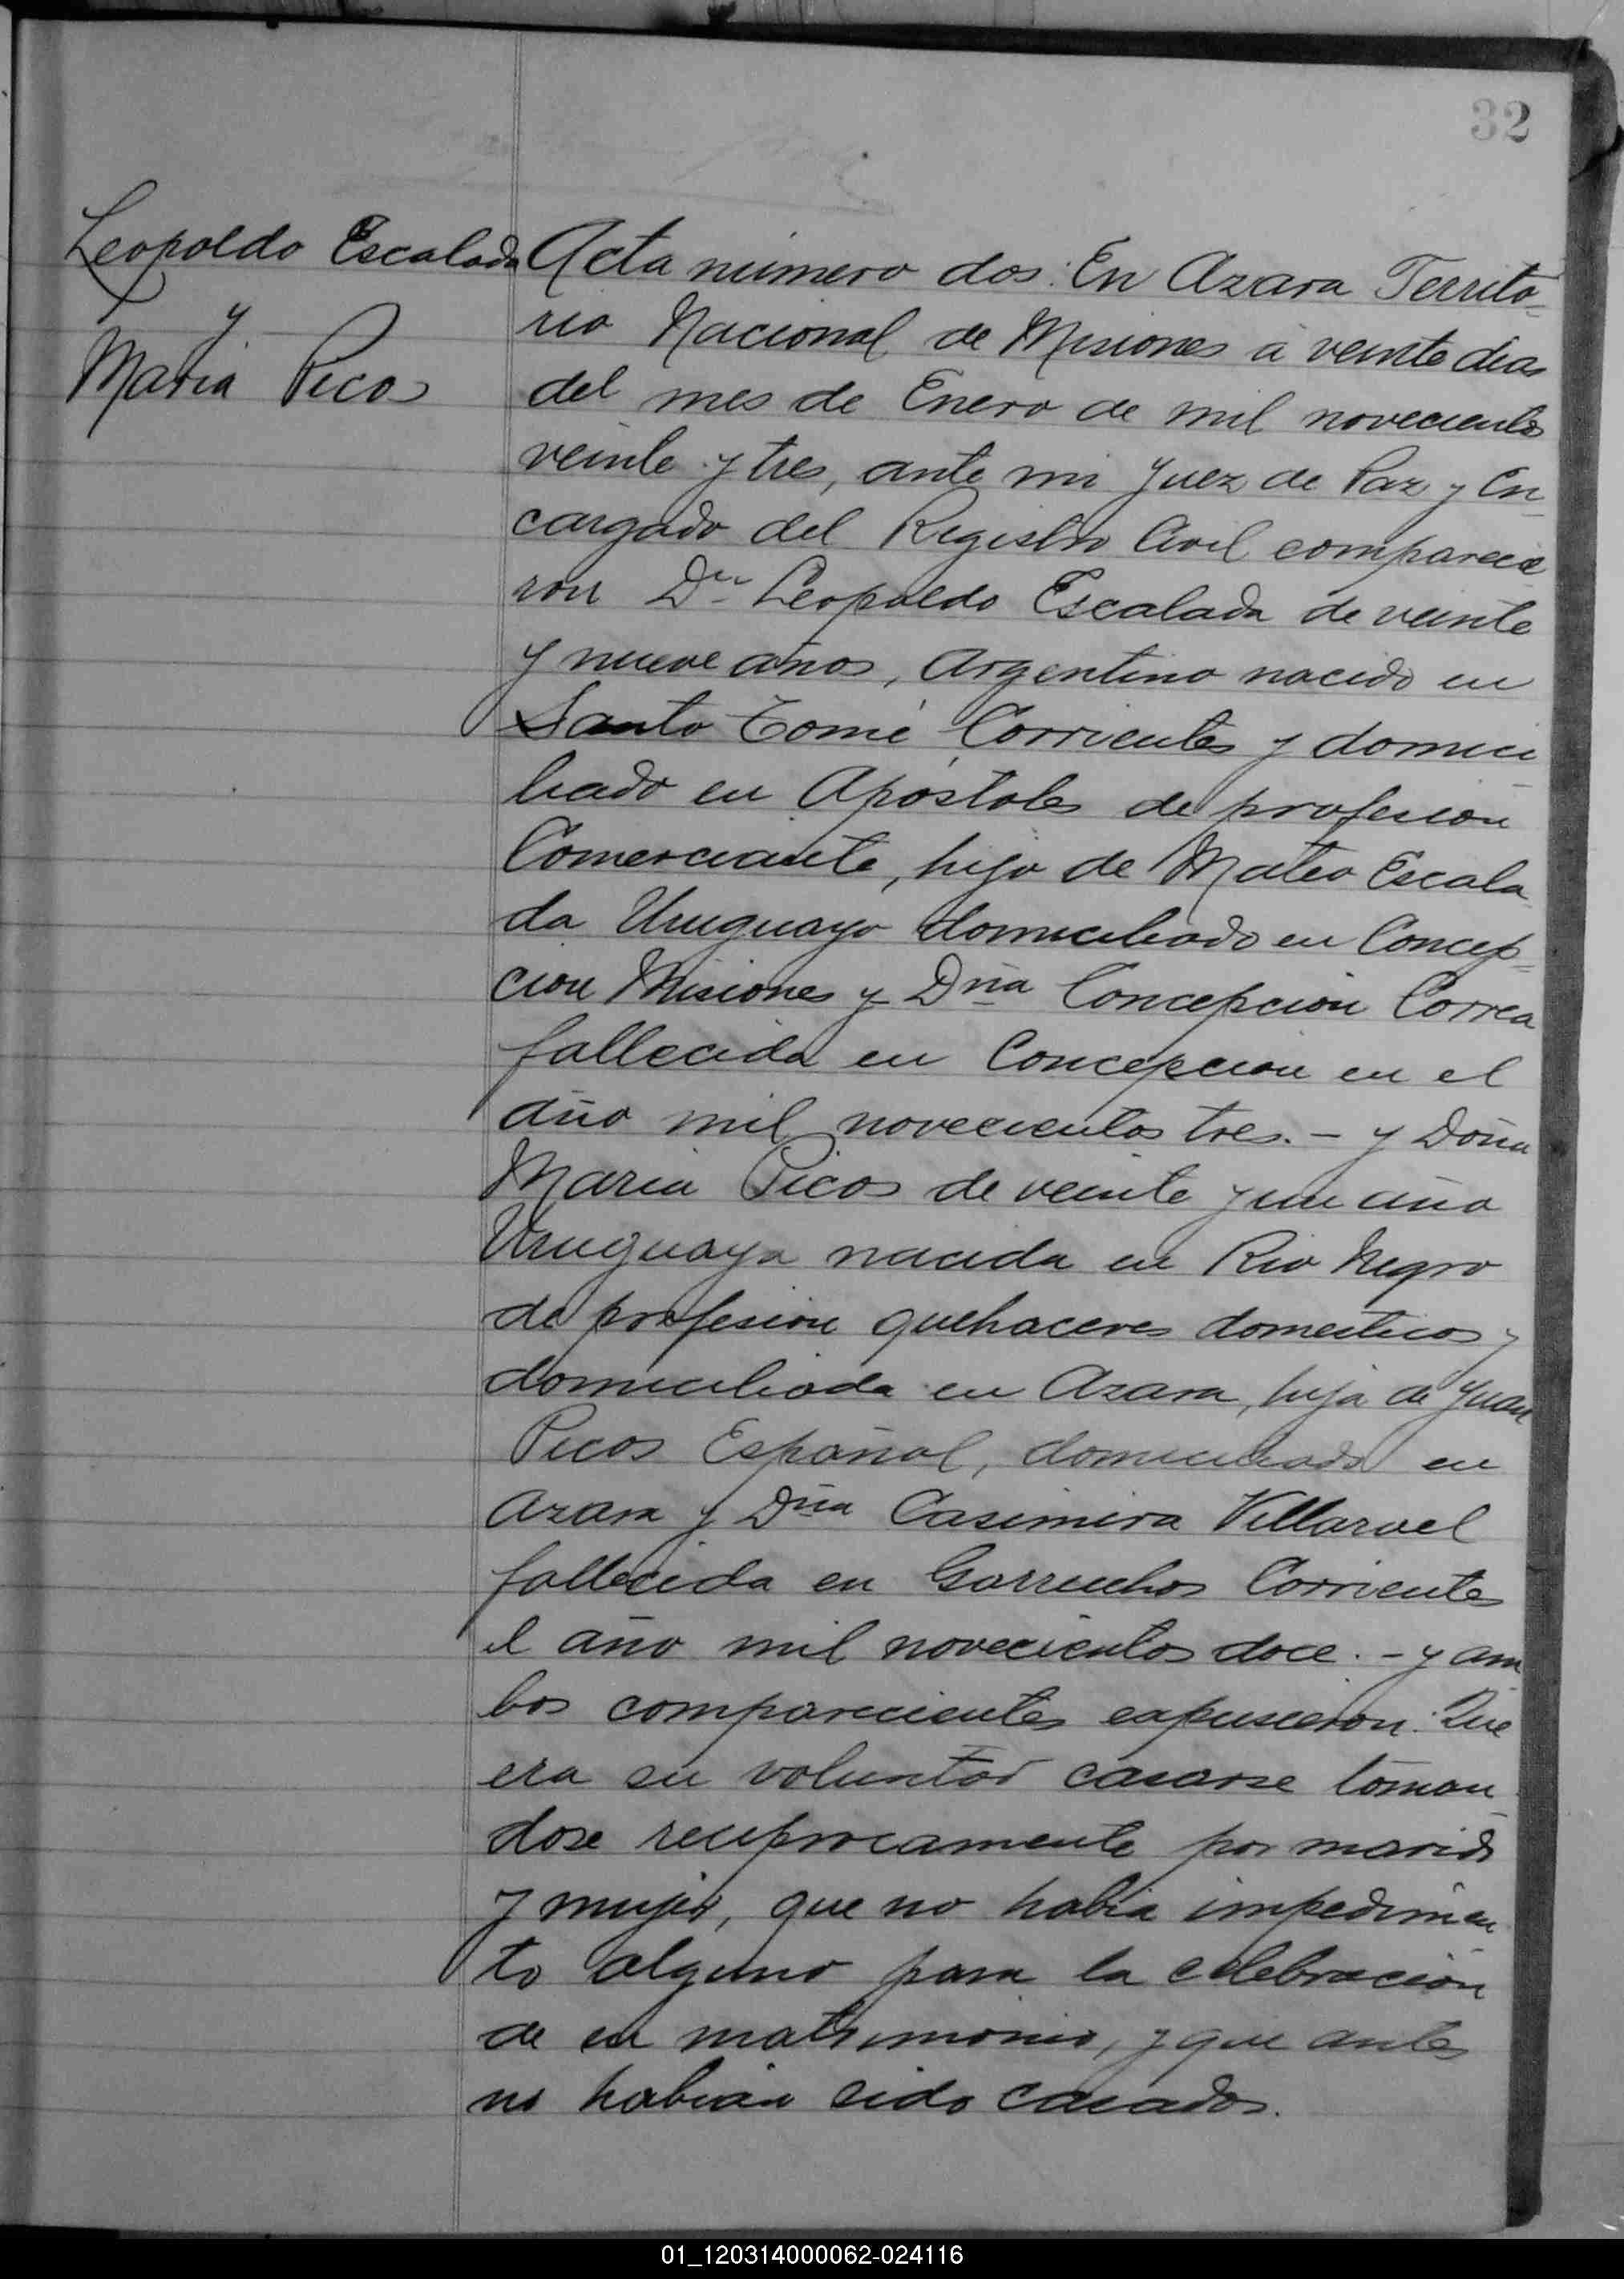 32
Leopoldo Escalada
y
Maria Picos
Acta número dos: En Azara Territo-
rio Nacional de Misiones á veinte dias
del mes de Enero de mil novecientos
veinte y tres, ante mi Juez de Paz y En-
cargado del Registro Civil comparecie
ron Dn Leopoldo Escalada de veinte
y nueve años, Argentino nacido en
Santo Tomé, Corrientes y domici
liado en Apóstoles de profesion
Comerciante, hijo de Mateo Escala
da Uruguayo domiciliado en Concep-
cion Misiones y Dña Concepcion Correa
fallecida en Concepcion en el
año mil novecientos tres. - y Doña
Maria Picos de veinte y un año
Uruguaya nacida en Rio Negro
de profesion quehaceres domesticos y
domiciliada en Azara, hija de Juan
Picos Español, domiciliado en
Azara y Dña Casimira Villaruel
fallecida en Garruchos Corrientes
el año mil novecientos doce. - y am
bos comparecientes expusieron: Que
era su voluntad casarse toman
dose reciprocamente por marido
y mujer, que no habia impedimen
to alguno para la celebracion
de su matrimonio, y que antes
no habian sido casados.
01_120314000062-024116